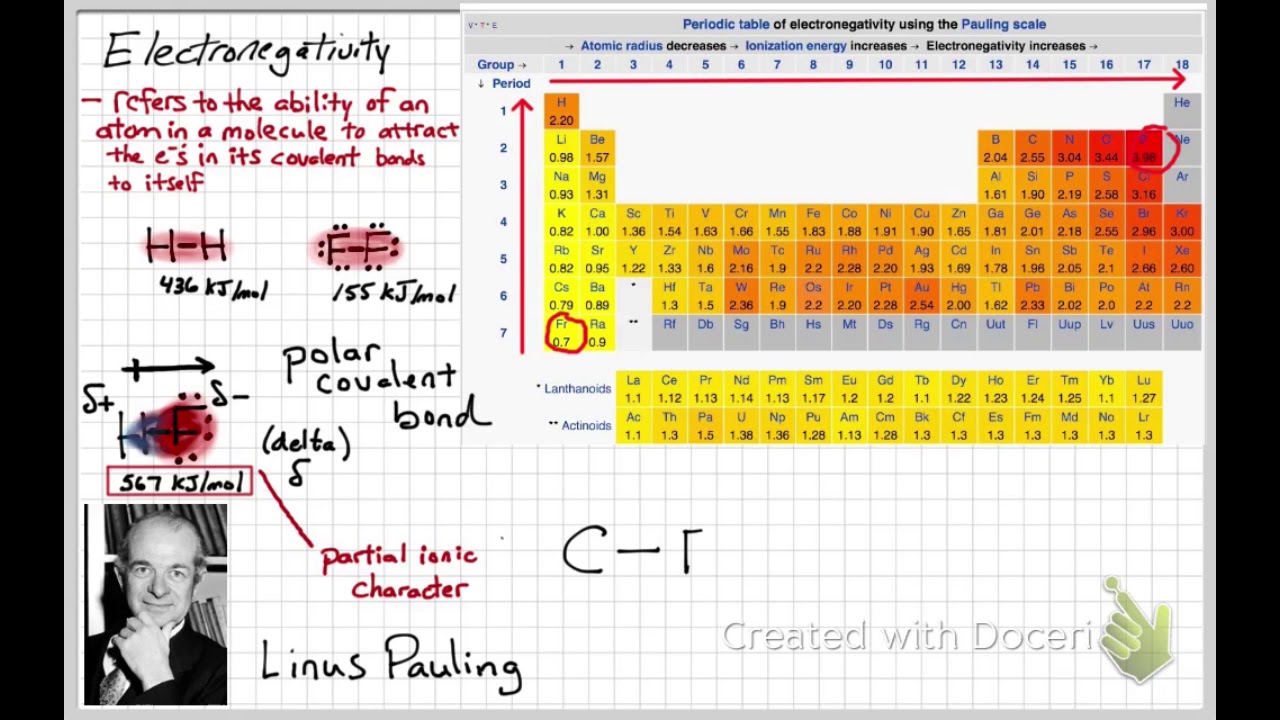 Electronegativity
- refers to the ability of an
atom in a molecule to attract
the e⁻s in its covalent bonds
to itself
H-H
436 KJ/mol
F-F
155 KJ/mol
δ+ δ-
H-F
567 KJ/mol
polar
covalent
bond
(delta)
δ
partial ionic
character
Linus Pauling
V·T·E
Periodic table of electronegativity using the Pauling scale
→ Atomic radius decreases → Ionization energy increases → Electronegativity increases →
Group → 1 2 3 4 5 6 7 8 9 10 11 12 13 14 15 16 17 18
↓ Period
1 H He
2.20
2 Li Be B C N O F Ne
0.98 1.57 2.04 2.55 3.04 3.44 3.98
3 Na Mg Al Si P S Cl Ar
0.93 1.31 1.61 1.90 2.19 2.58 3.16
4 K Ca Sc Ti V Cr Mn Fe Co Ni Cu Zn Ga Ge As Se Br Kr
0.82 1.00 1.36 1.54 1.63 1.66 1.55 1.83 1.88 1.91 1.90 1.65 1.81 2.01 2.18 2.55 2.96 3.00
5 Rb Sr Y Zr Nb Mo Tc Ru Rh Pd Ag Cd In Sn Sb Te I Xe
0.82 0.95 1.22 1.33 1.6 2.16 1.9 2.2 2.28 2.20 1.93 1.69 1.78 1.96 2.05 2.1 2.66 2.60
6 Cs Ba * Hf Ta W Re Os Ir Pt Au Hg Tl Pb Bi Po At Rn
0.79 0.89 1.3 1.5 2.36 1.9 2.2 2.20 2.28 2.54 2.00 1.62 2.33 2.02 2.0 2.2 2.2
7 Fr Ra ** Rf Db Sg Bh Hs Mt Ds Rg Cn Uut Fl Uup Lv Uus Uuo
0.7 0.9
* Lanthanoids La Ce Pr Nd Pm Sm Eu Gd Tb Dy Ho Er Tm Yb Lu
1.1 1.12 1.13 1.14 1.13 1.17 1.2 1.2 1.1 1.22 1.23 1.24 1.25 1.1 1.27
** Actinoids Ac Th Pa U Np Pu Am Cm Bk Cf Es Fm Md No Lr
1.1 1.3 1.5 1.38 1.36 1.28 1.13 1.28 1.3 1.3 1.3 1.3 1.3 1.3 1.3
C -
Created with Doceri